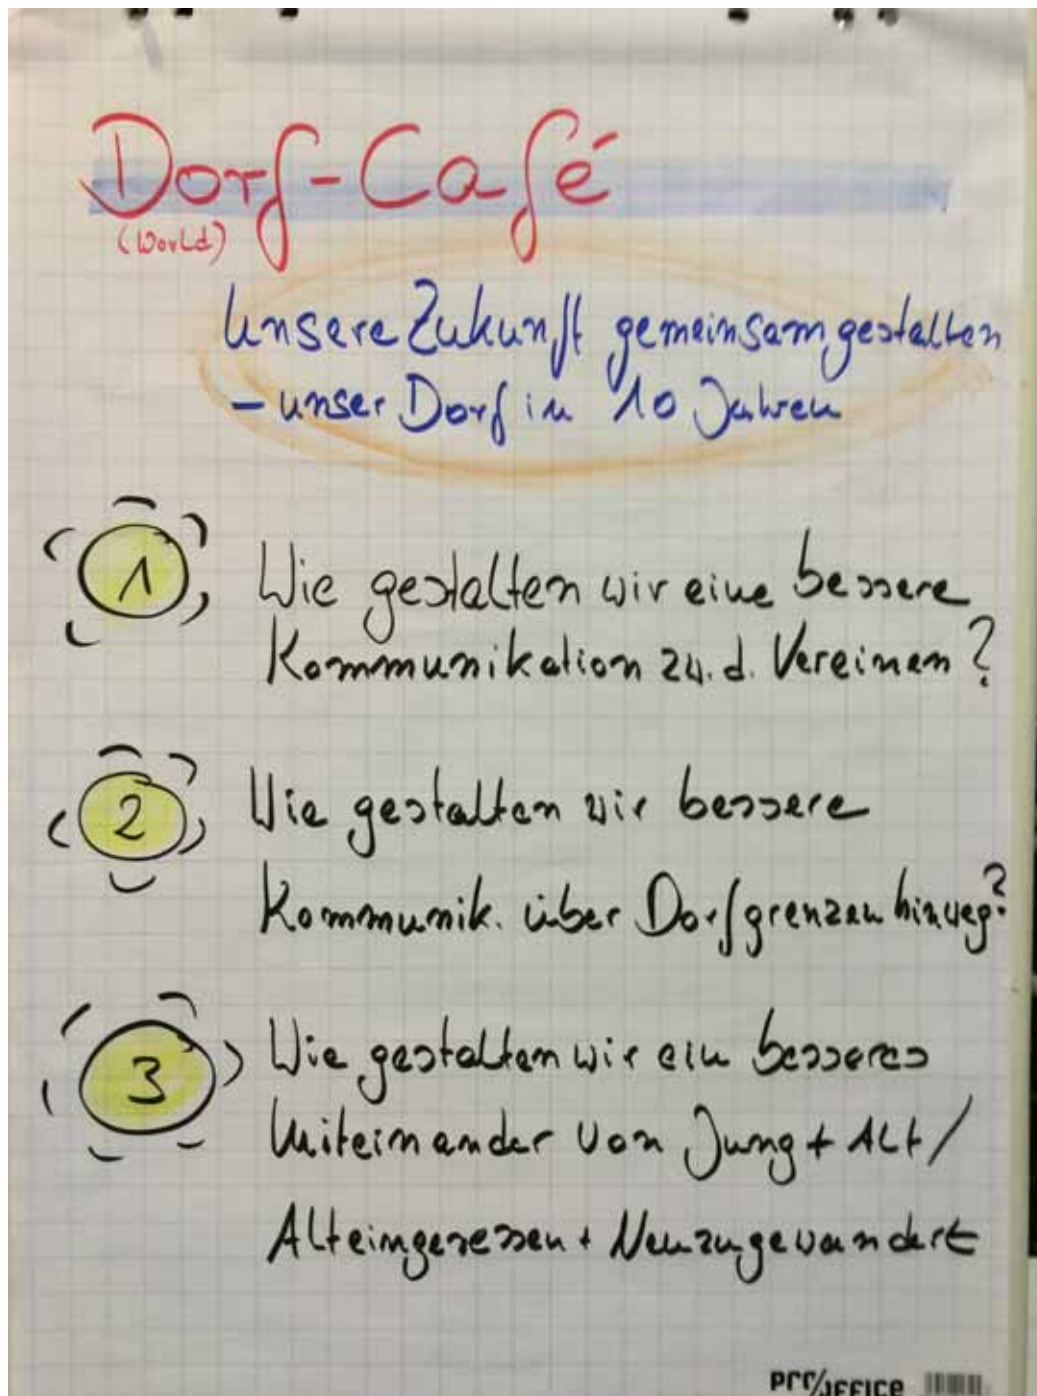 Dorf-Café
(World)
Unsere Zukunft gemeinsam gestalten
- unser Dorf in 10 Jahren
1 Wie gestalten wir eine bessere
Kommunikation zw. d. Vereinen?
2 Wie gestalten wir bessere
Kommunik. über Dorfgrenzen hinweg?
3 Wie gestalten wir ein besseres
Miteinander von Jung + Alt /
Alteingesessen + Neuzugewandert
PRO/OFFICE